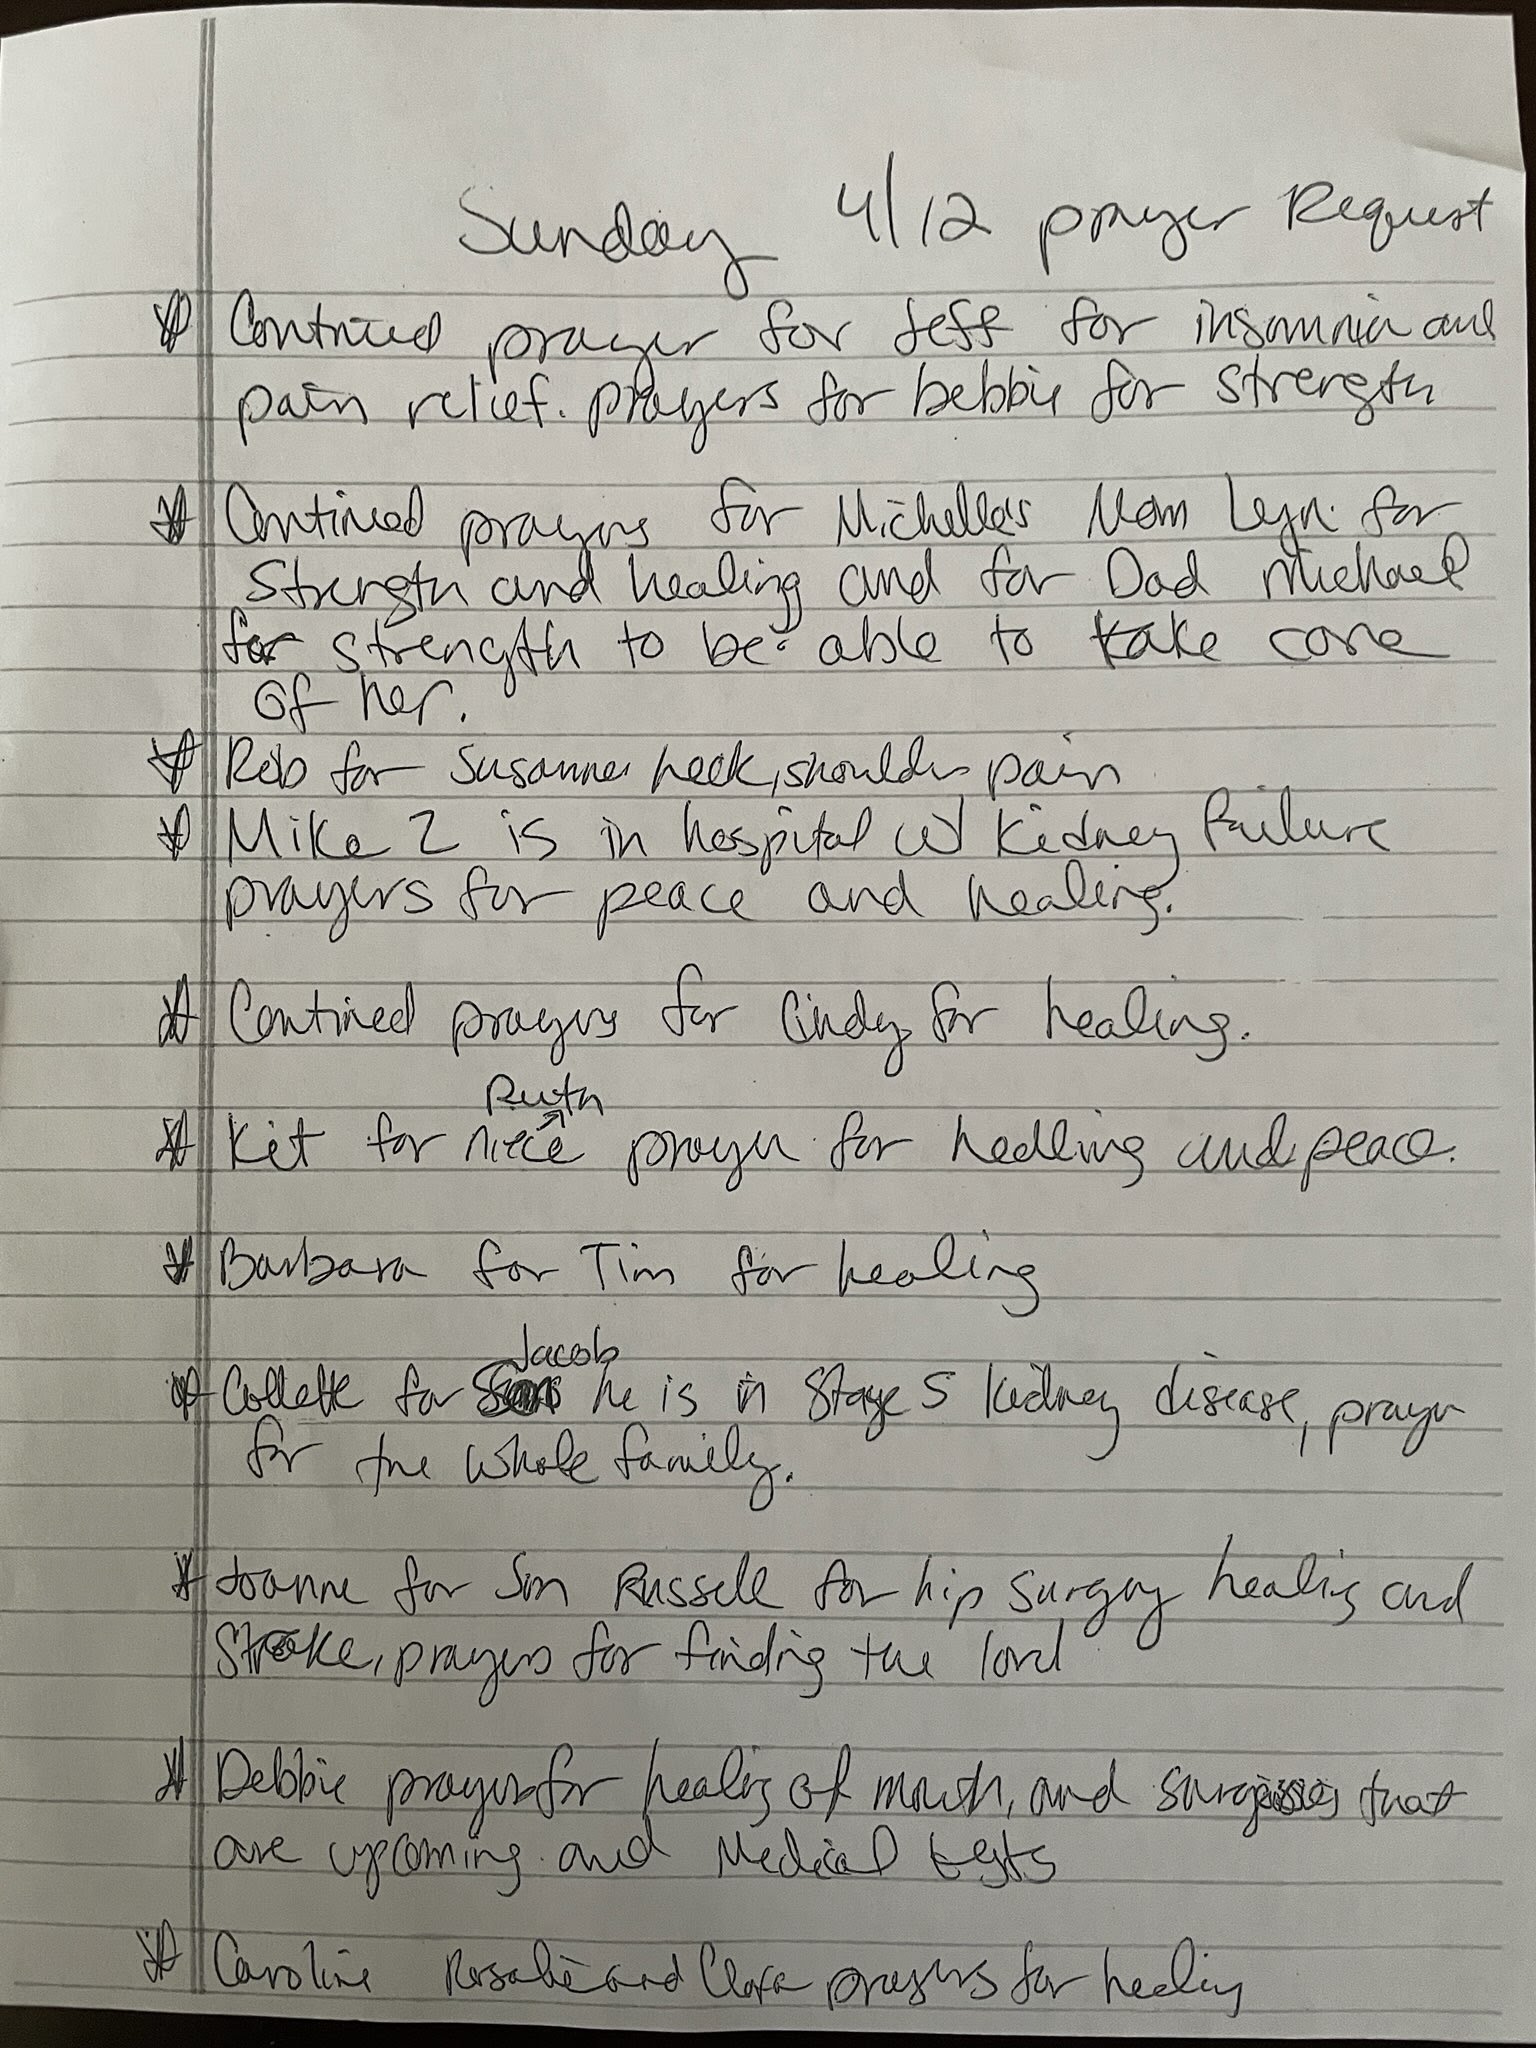 Sunday 4/12 prayer Request
Contined prayer for Jeff for insomnia and
pain relief. prayers for Debbie for strength
Contined prayers for Michelle's Mom Lyn for
Strength and healing and for Dad Michael
for strength to be able to take care
of her.
Rob for Susanne neck, shoulder pain
Mike Z is in hospital w/ Kidney Failure
prayers for peace and healing.
Contined prayers for Cindy for healing.
Ruth
Kit for niece prayer for healing and peace.
Barbara for Tim for healing
Jacob
Collette for he is in Stage 5 kidney disease, prayer
for the whole family.
Joanne for Son Russell for hip surgery healing and
Stroke, prayers for finding the lord
Debbie prayers for healing of mouth, and surgeries that
are upcoming and Medical tests
Caroline Rosalie and Clara prayers for healing